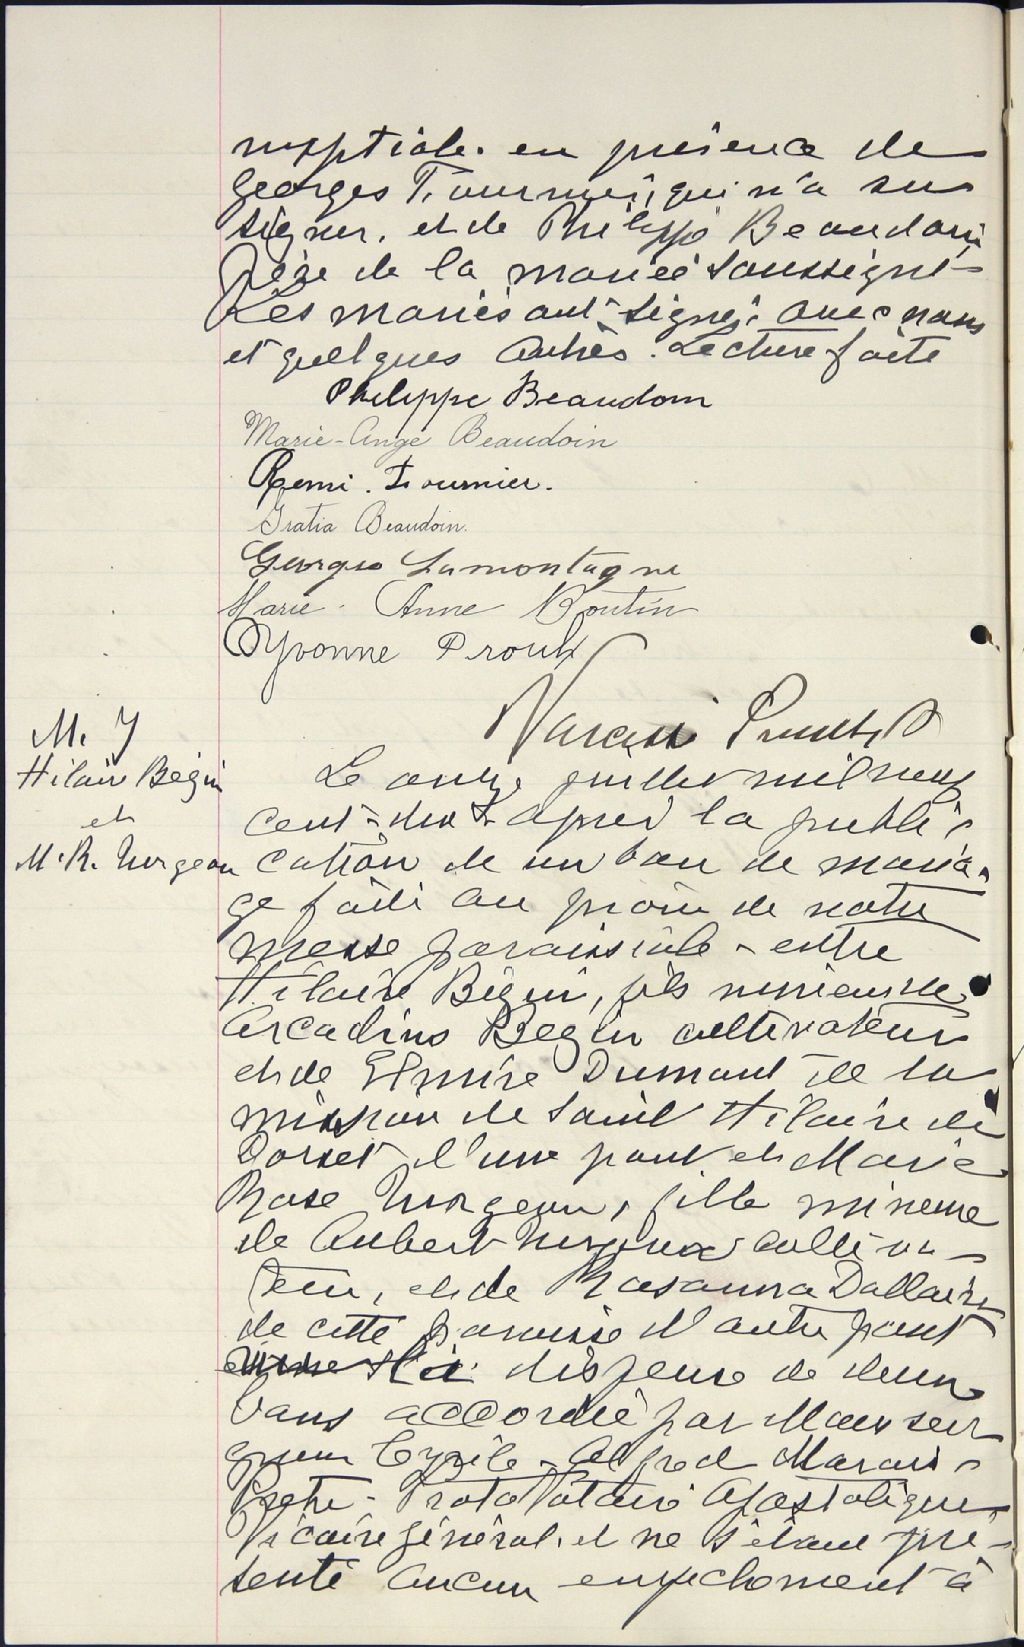 nupptiale. en présence de
Georges Fournier, qui n'a su
signer. et de Philippe Beaudoin
Père de la mariée soussigné
Les mariés ont signés avec nous
et quelques autres. Lecture faite
Philippe Beaudoin
Marie-Ange Beaudoin
Remi. Fournier.
Gratia Beaudoin.
Georges Lamontagne
Marie. Anne Boutin
Yvonne Proulx
Narcisse Proulx, Ptre
M. 7
Hilaire Bégin
et
M. R. Turgeon
Le onze juillet mil neuf
cent-dix- après la publi-
cation de un ban de maria-
ge faite au prône de notre
messe paroissiale - entre
Hilaire Bégin, fils mineur de
Arcadius Begin cultivateur
et de Elmire Dumont de la
mission de Saint Hilaire de
Dorset d'une part et Marie
Rose Turgeon, fille mineure
de Aubert Turgeon cultiva-
teur, et de Rosanna Dallaire
de cette paroisse d'autre part
vu la dispense de deux
bans accordée par Monsei-
gneur Cyrile-Alfred Marois
Prêtre-Protonotaire Apostolique
Vicaire général. et ne s'étant pré-
senté aucun empêchement à